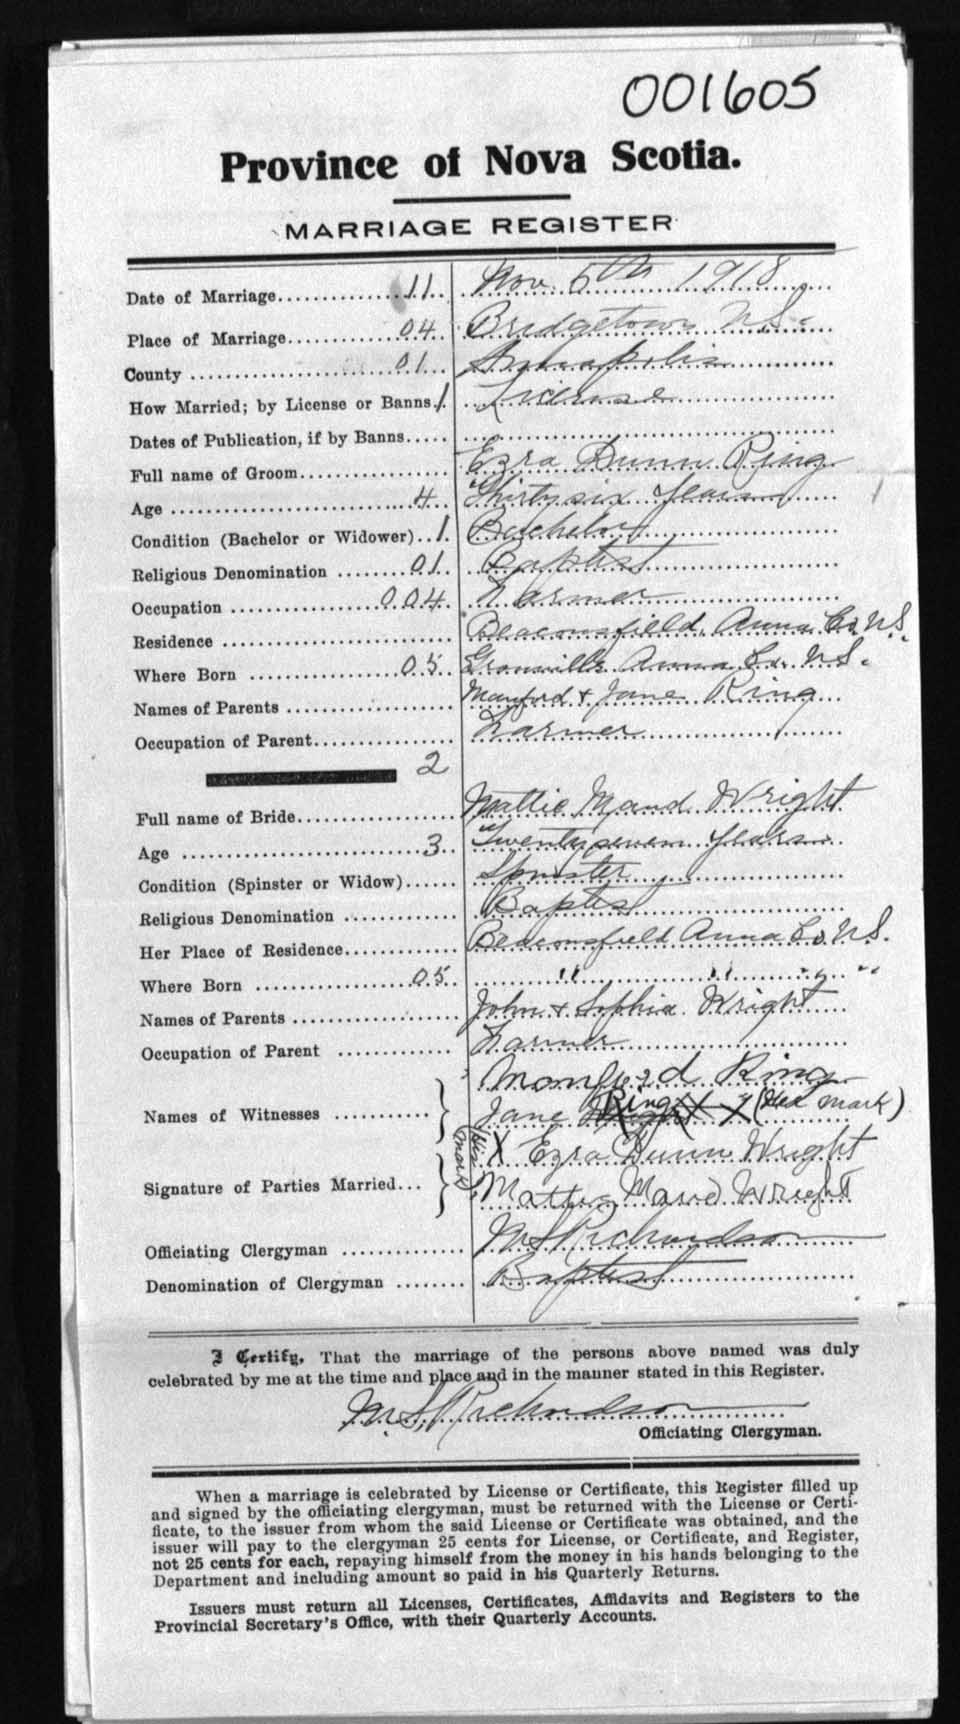 001605
Province of Nova Scotia.
MARRIAGE REGISTER
Date of Marriage 11 Nov. 5th 1918
Place of Marriage 04 Bridgetown N.S.
County 01 Annapolis
How Married; by License or Banns 1 License
Dates of Publication, if by Banns
Full name of Groom Ezra Dunn Ring
Age 4 Thirty six years
Condition (Bachelor or Widower) 1 Bachelor
Religious Denomination 01 Baptist
Occupation 004 Farmer
Residence Beaconsfield, Anna. Co. N.S.
Where Born 05 Granville Anna Co. N.S.
Names of Parents Manford & Jane Ring
Occupation of Parent Farmer
2
Full name of Bride Mattie Maud Wright
Age 3 Twenty seven years
Condition (Spinster or Widow) Spinster
Religious Denomination Baptist
Her Place of Residence Beaconsfield Anna Co. N.S.
Where Born 05 " " " "
Names of Parents John & Sophia Wright
Occupation of Parent Farmer
Names of Witnesses Monford Ring
Jane Ring X (Her mark)
Signature of Parties Married (His mark) X Ezra Dunn Wright
Mattie Maud Wright
Officiating Clergyman M. S. Richardson
Denomination of Clergyman Baptist
I Certify, That the marriage of the persons above named was duly
celebrated by me at the time and place and in the manner stated in this Register.
M. S. Richardson
Officiating Clergyman.
When a marriage is celebrated by License or Certificate, this Register filled up
and signed by the officiating clergyman, must be returned with the License or Certi-
ficate, to the issuer from whom the said License or Certificate was obtained, and the
issuer will pay to the clergyman 25 cents for License, or Certificate, and Register,
not 25 cents for each, repaying himself from the money in his hands belonging to the
Department and including amount so paid in his Quarterly Returns.
Issuers must return all Licenses, Certificates, Affidavits and Registers to the
Provincial Secretary's Office, with their Quarterly Accounts.